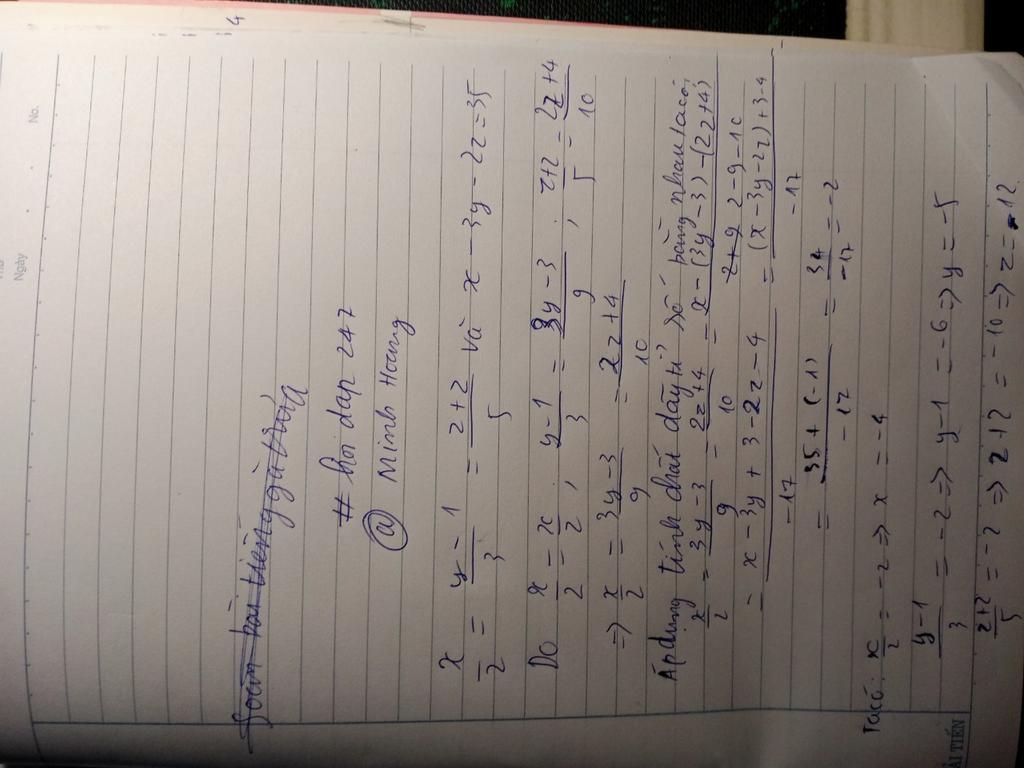 No.
Ngày
4
# hoi dap 247
@ Minh Hoang
x/2 = y-1/3 = z+2/5 Và x - 3y - 2z = 35
Do x/2 = x/2 ; y-1/3 = 3y-3/9 ; z+2/5 = 2z+4/10
=> x/2 = 3y-3/9 = 2z+4/10
Áp dụng tính chất dãy tỉ số bằng nhau ta có
x/2 = 3y-3/9 = 2z+4/10 = x-(3y-3)-(2z+4)/2-9-10
= x-3y+3-2z-4/-17 = (x-3y-2z)+3-4/-17
= 35+(-1)/-17 = 34/-17 = -2
Ta có: x/2 = -2 => x = -4
y-1/3 = -2 => y-1 = -6 => y = -5
z+2/5 = -2 => z+2 = -10 => z = -12
ẢI TIẾN